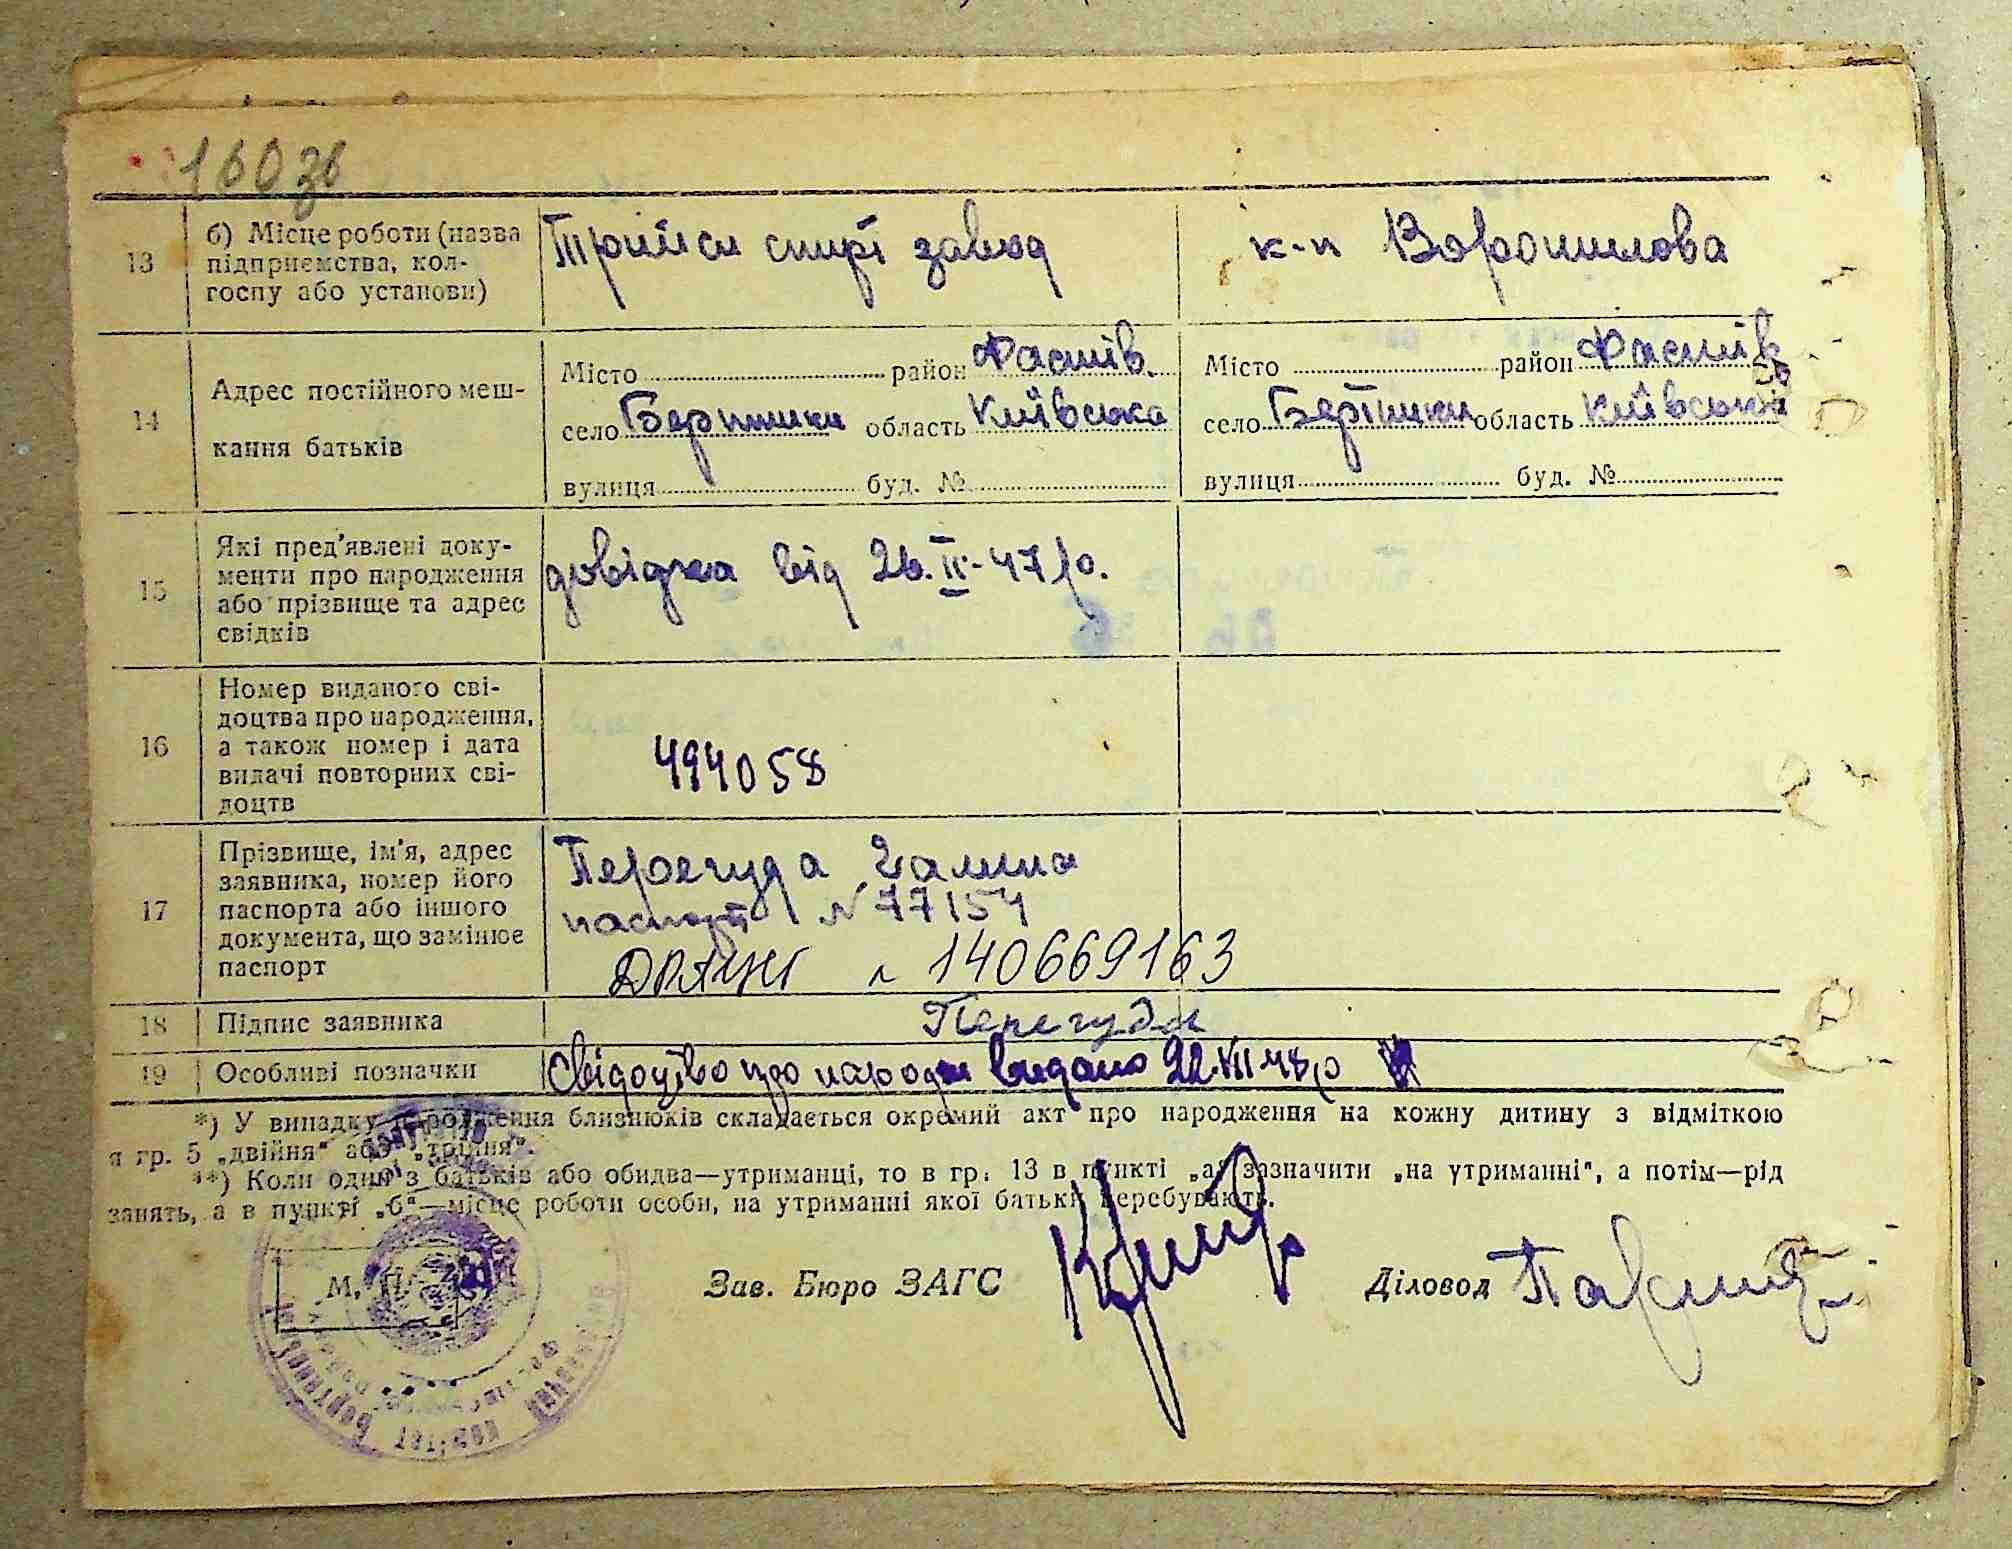 160зв
13
б) Місце роботи (назва
підприємства, кол-
госпу або установи)
спирт завод
к-п Ворошилова
14
Адрес постійного меш-
кання батьків
Місто район Фастів.
село область Київська
вулиця буд. №
Місто район Фастів
село область Київська
вулиця буд. №
15
Які пред'явлені доку-
менти про народження
або прізвище та адрес
свідків
довідка від 26.II-47 р.
16
Номер виданого сві-
доцтва про народження,
а також номер і дата
видачі повторних сві-
доцтв
494058
17
Прізвище, ім'я, адрес
заявника, номер його
паспорта або іншого
документа, що замінює
паспорт
Перегуда Галина
паспорт №77154
№ 140669163
18
Підпис заявника
Перегуда
19
Особливі позначки
Свідоцтво про народж видано 22.VII 48 р
*) У випадку народження близнюків складається окремий акт про народження на кожну дитину з відміткою
я гр. 5 „двійня" або „трійня".
**) Коли один з батьків або обидва—утриманці, то в гр. 13 в пункті „а" зазначити „на утриманні", а потім—рід
занять, а в пункті „б"—місце роботи особи, на утриманні якої батьки перебувають.
М. П.
Зав. Бюро ЗАГС
Діловод